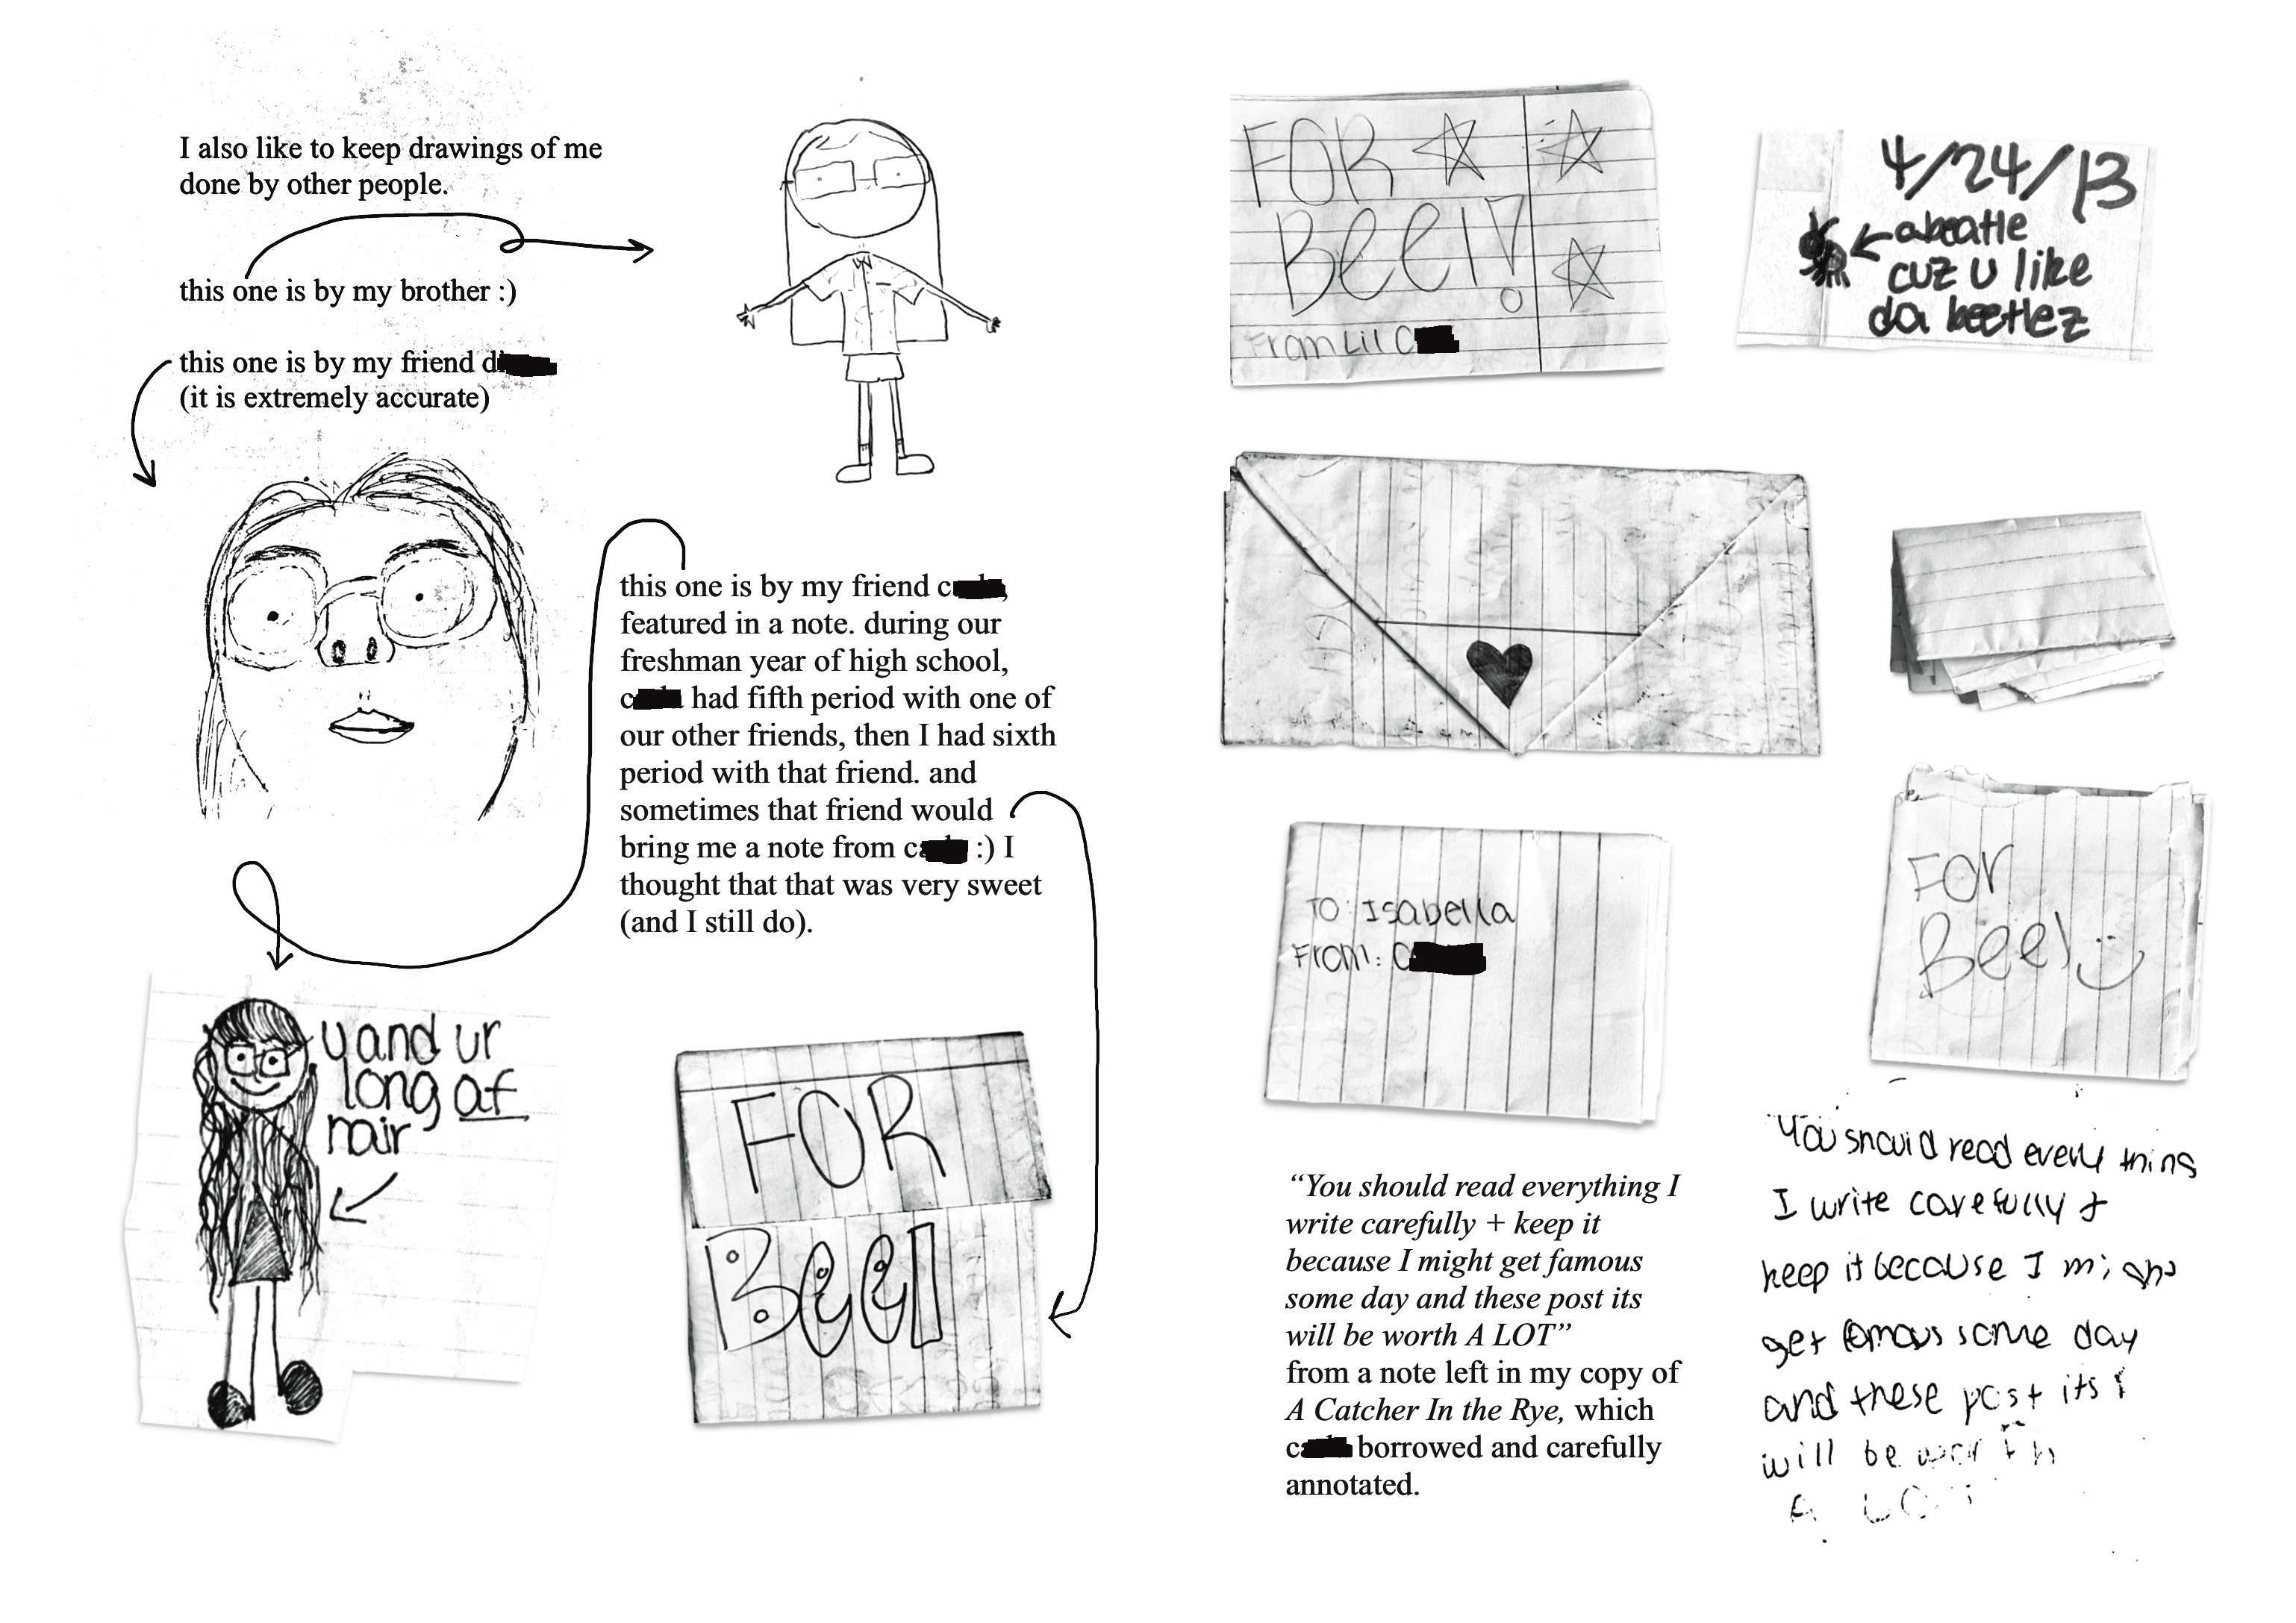 I also like to keep drawings of me
done by other people.
this one is by my brother :)
this one is by my friend d
(it is extremely accurate)
this one is by my friend c
featured in a note. during our
freshman year of high school,
c had fifth period with one of
our other friends, then I had sixth
period with that friend. and
sometimes that friend would
bring me a note from c :) I
thought that that was very sweet
(and I still do).
u and ur
long af
hair
FOR
Beel
FOR
Beel!
From Lil C
4/24/13
a beatle
cuz u like
da beetlez
TO: Isabella
From: C
For
Beel :)
“You should read everything I
write carefully + keep it
because I might get famous
some day and these post its
will be worth A LOT”
from a note left in my copy of
A Catcher In the Rye, which
c borrowed and carefully
annotated.
You should read everything
I write carefully +
keep it because I might
get famous some day
and these post its
will be worth
A LOT